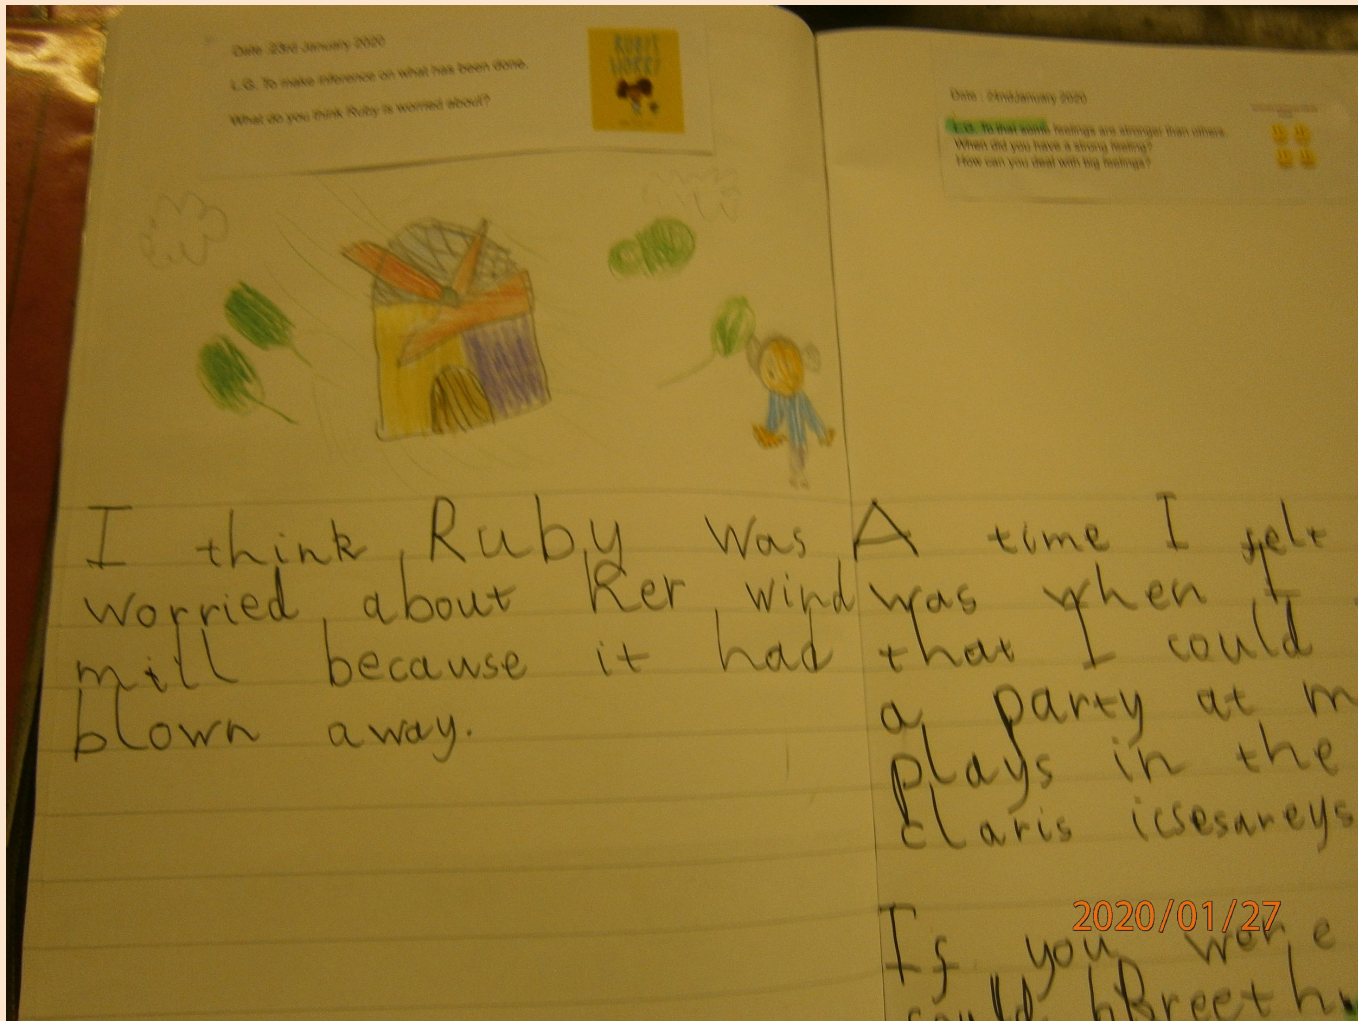 Date : 23rd January 2020
L.G. To make inference on what has been done.
What do you think Ruby is worried about?
RUBY'S
WORRY
I think Ruby was
worried about her wind
mill because it had
blown away.
Date : 24nd January 2020
L.G. To that some feelings are stronger than others.
When did you have a strong feeling?
How can you deal with big feelings?
A time I felt
was when I
that I could
a party at m
plays in the
claris icsesareys
If you were
could Breeth
2020/01/27